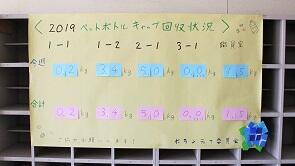 ＜2019 ペットボトルキャップ回収状況＞
1-1 1-2 2-1 3-1 職員室
今週 0,2kg 3,4kg 5,0kg 0,0kg 1,5kg
合計 0,2kg 3,4kg 5,0kg 0,0kg 1,5kg